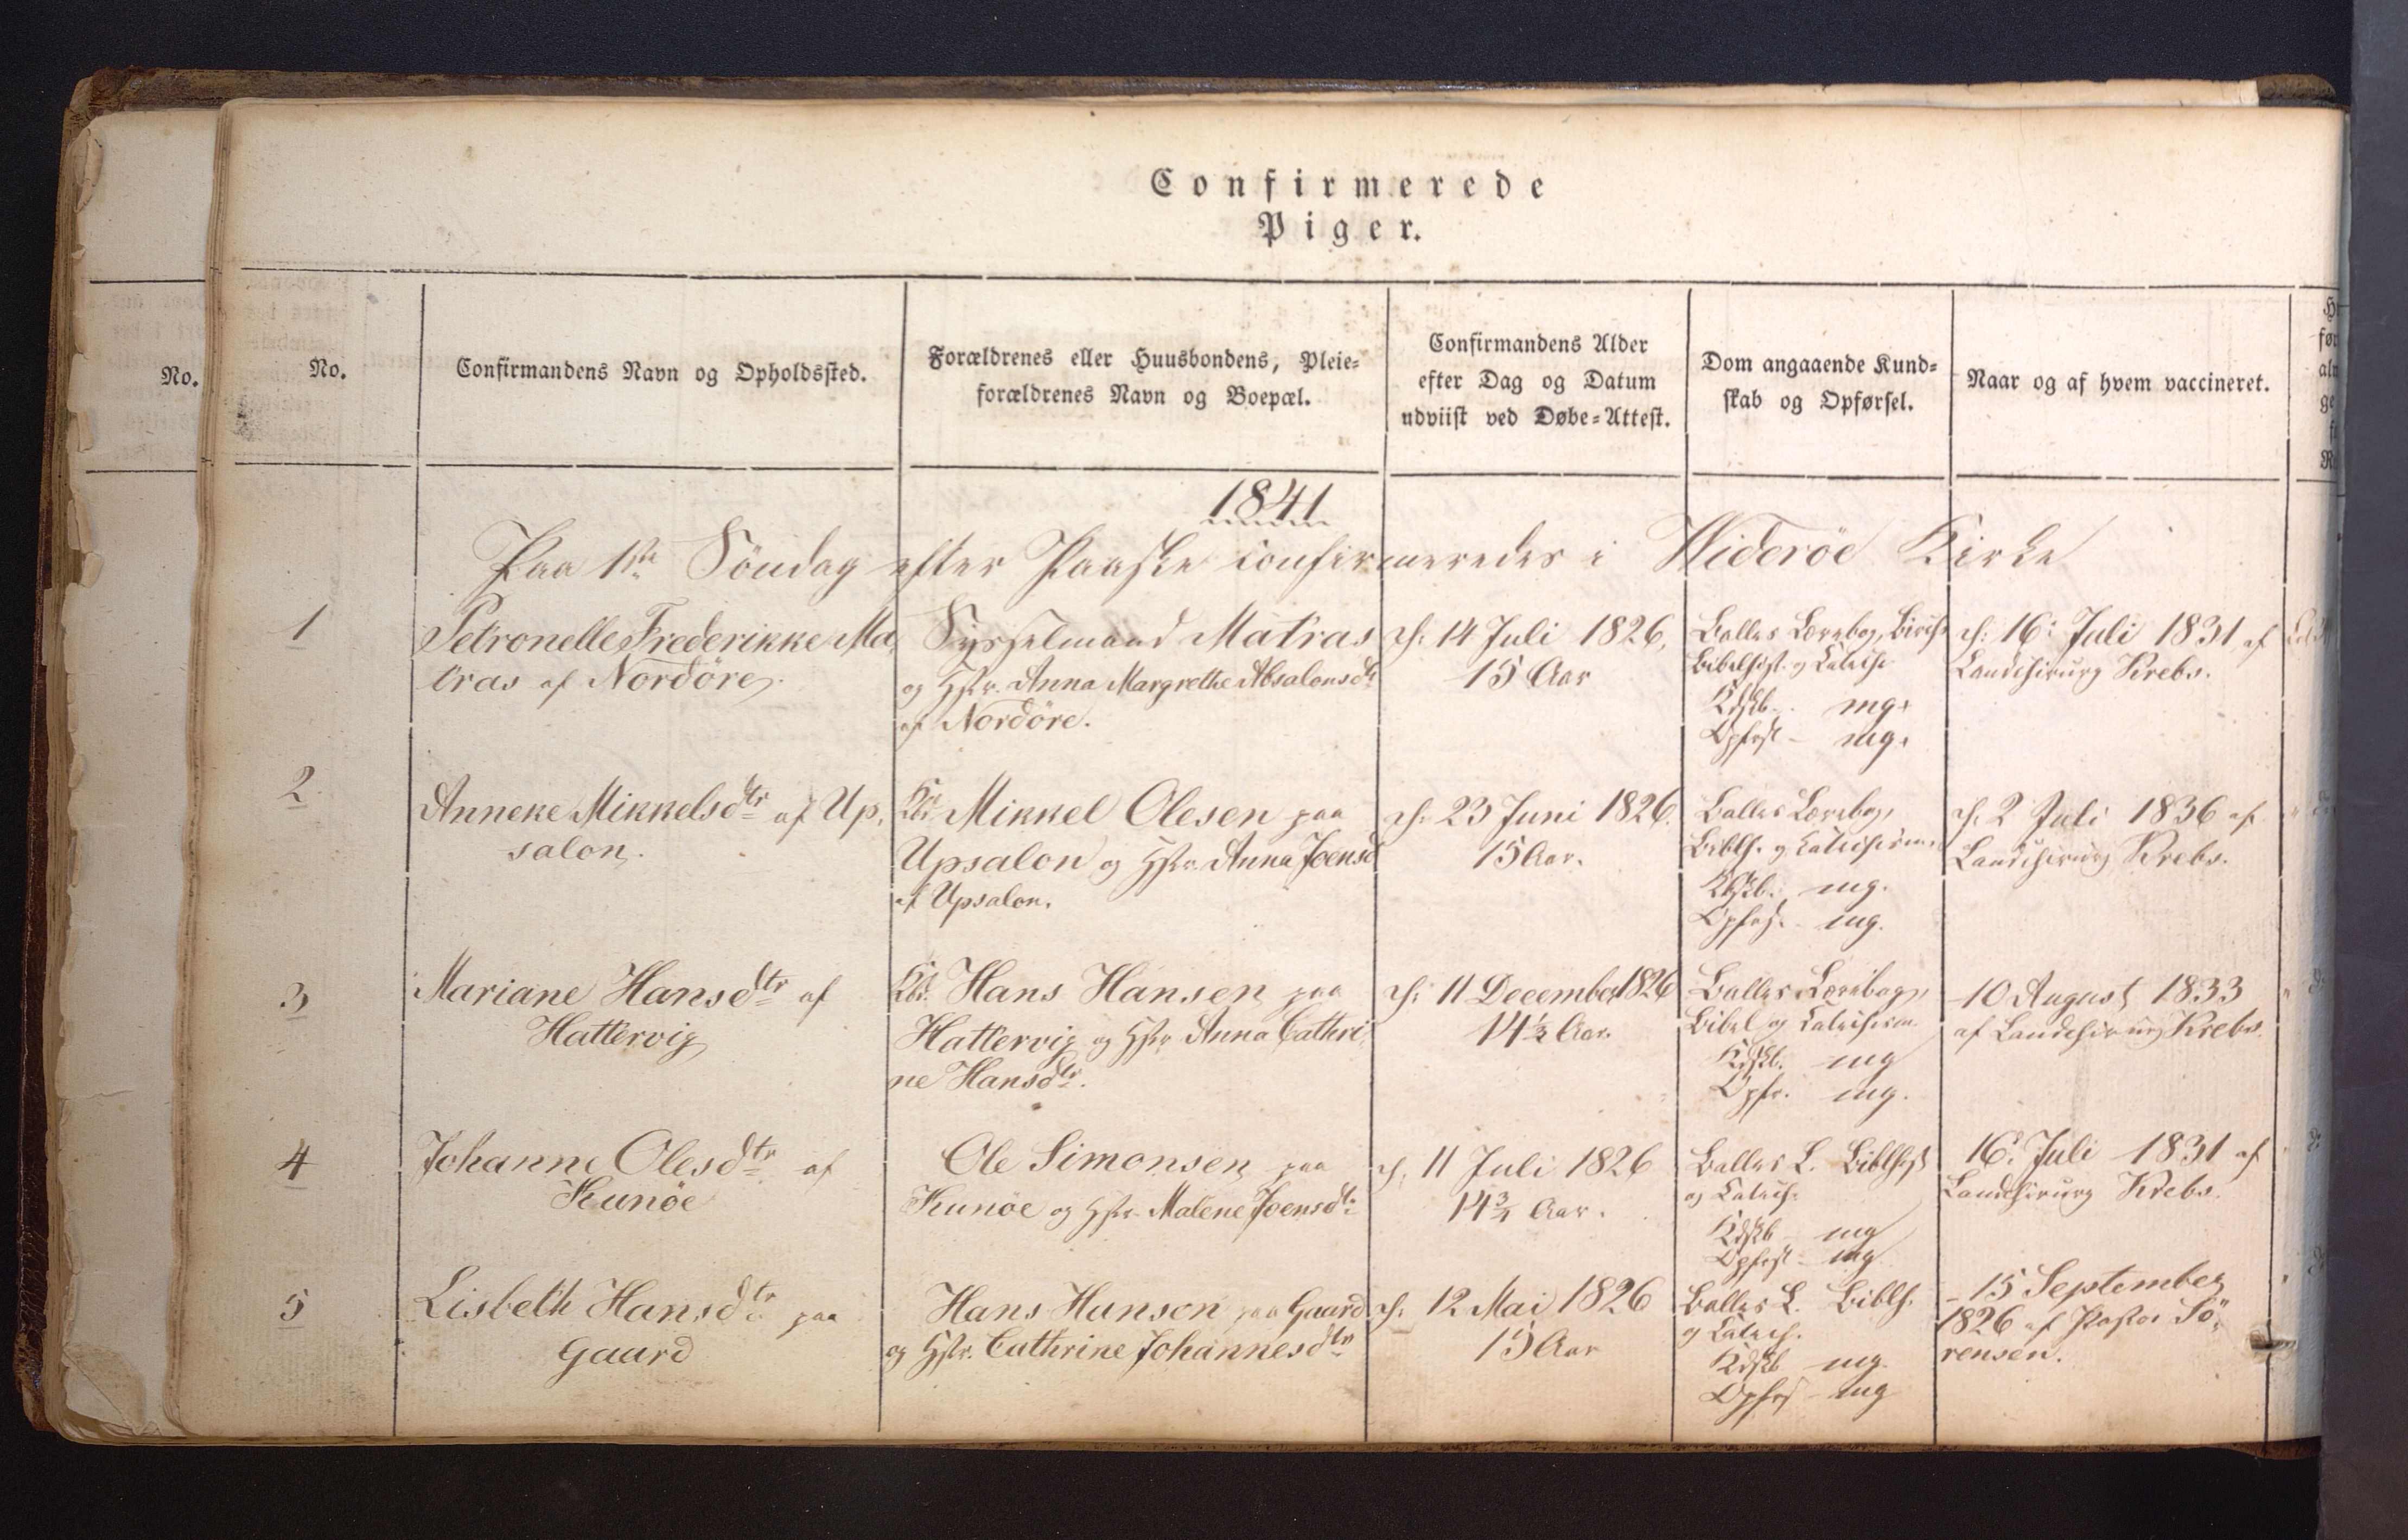 Confirmerede
Piger.
No.
No.
Confirmandens Navn og Opholdssted.
Forældrenes eller Huusbondens, Pleie=
forældrenes Navn og Boepæl.
Confirmandens Alder
efter Dag og Datum
udviist ved Døbe=Attest.
Dom angaaende Kund=
skab og Opførsel.
Naar og af hvem vaccineret.
1841
Paa 1ste Söndag efter Paaske confirmeredes i Wideröe Kirke
1
Petronelle Frederikke Ma,
tras af Nordöre,
Sysselmand Matras
og Hstr. Anna Margrethe Absalonsdtr
af Nordöre.
f. 14 Juli 1826,
15 Aar
Balles Lærebog, Birchs
Bibelhist. og Catech.
Kdskb. mg+
Opførsl – mg.
d. 16. Juli 1831 af
Landchirurg Krebs.
2
Anneke Mikkelsdtr af Up,
salon.
Mikkel Olesen paa
Upsalon og Hstr. Anna Joensd
af Upsalon.
f. 23 Juni 1826.
15 Aar.
Balles Lærebog,
Biblh. og Catechism.
Kdskb. mg.
Opførs. mg.
d. 2 Juli 1836 af
Landchirurg Krebs.
3
Mariane Hansdtr af
Hattervig
Hans Hansen paa
Hattervig og Hstr Anna Cathri,
ne Hansdtr.
f. 11 December 1826
14½ Aar.
Balles Lærebog,
Bibel og Catechism.
Kdskb. mg
Opfr. mg.
10 August 1833
af Landchirurg Krebs.
4
Johanne Olesdtr af
Kunöe
Ole Simonsen paa
Kunöe og Hstr Malene Joensdtr
f. 11 Juli 1826
14¾ Aar.
Balles L. Biblhist
og Catech.
Kdskb mg
Opførsl – mg
16. Juli 1831 af
Landchirurg Krebs.
5
Lisbeth Hansdtr paa
Gaard
Hans Hansen paa Gaard
og Hstr. Cathrine Johannesdtr
f. 12 Mai 1826
15 Aar
Balles L. Biblh.
og Catech.
Kdskb mg.
Opførs – mg
– 15 September
1826 af Pastor Sö,
rensen.